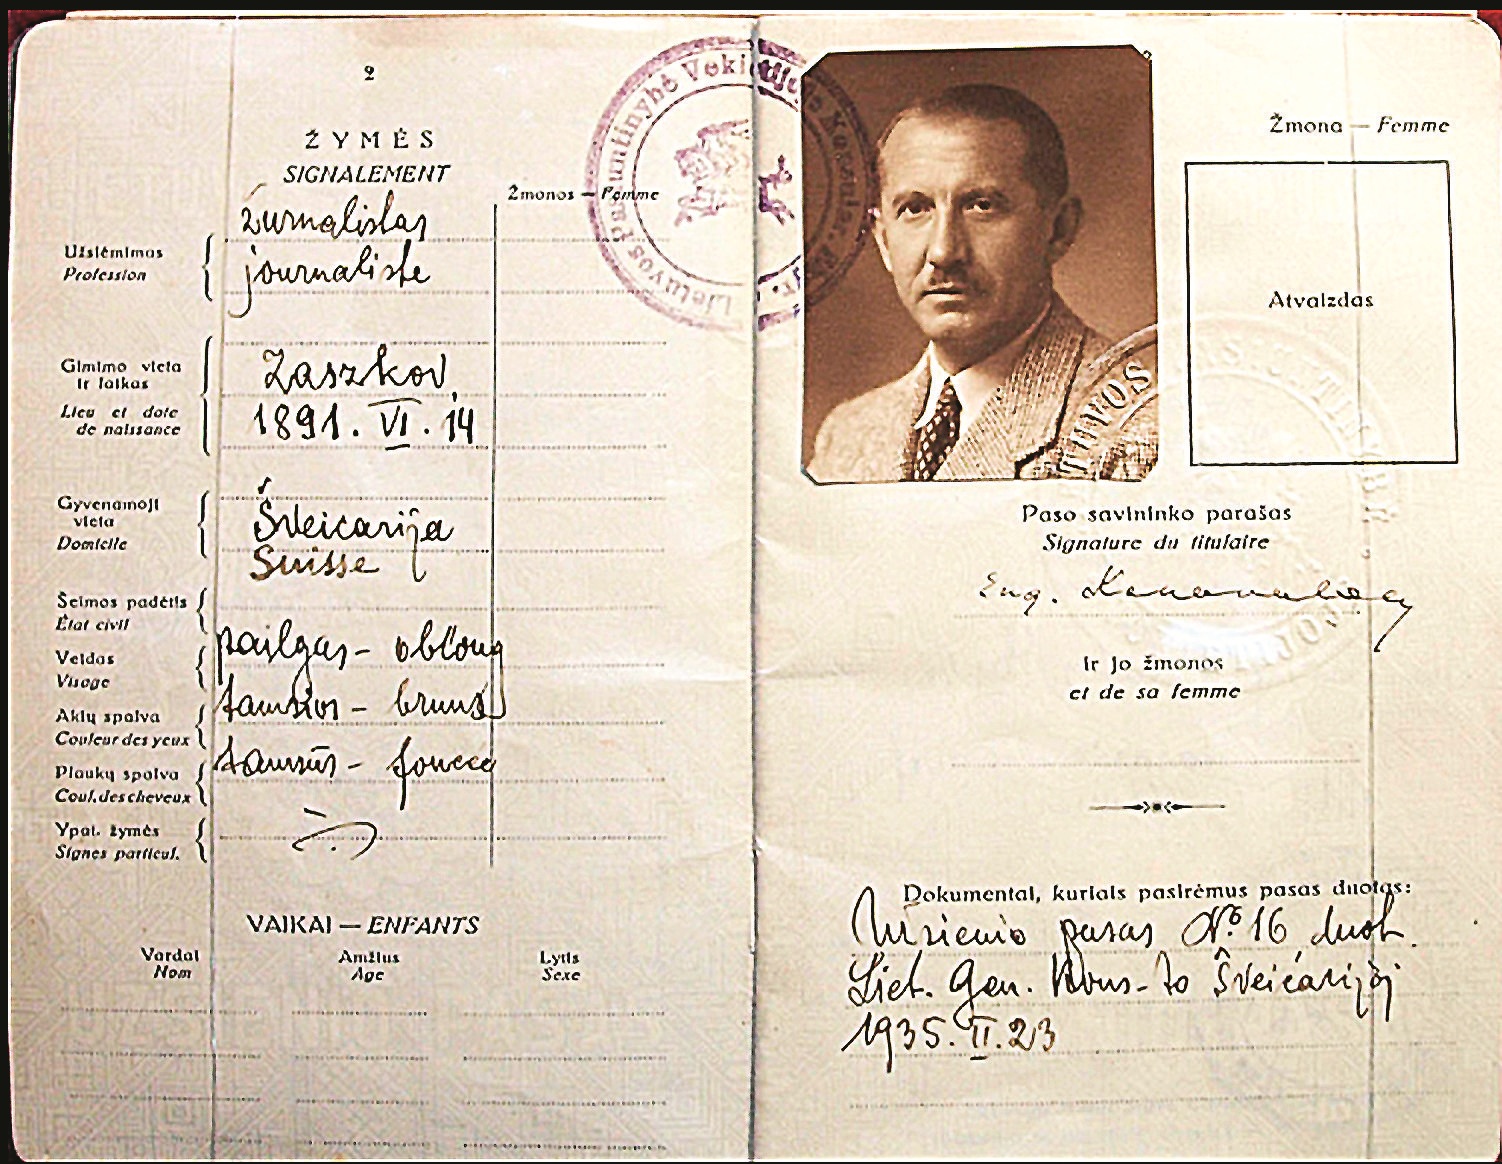 2
ŽYMĖS
SIGNALEMENT
Žmonos — Femme
Užsiėmimas
Profession
žurnalistas
journaliste
Gimimo vieta
ir laikas
Lieu et date
de naissance
Zaszkov,
1891. VI. 14
Gyvenamoji
vieta
Domicile
Šveicarija
Suisse
Šeimos padėtis
État civil
Veidas
Visage
pailgas - oblong
Akių spalva
Couleur des yeux
tamsios - bruns
Plaukų spalva
Coul. des cheveux
tamsūs - foncée
Ypat. žymės
Signes particul.
VAIKAI — ENFANTS
Vardai
Nom
Amžius
Age
Lytis
Sexe
Lietuvos Pasiuntinybė Vokietijoje
Žmona — Femme
Atvaizdas
TUVOS
Paso savininko parašas
Signature du titulaire
Eug. Konovalec
ir jo žmonos
et de sa femme
Dokumentai, kuriais pasirėmus pasas duotas:
Užsienio pasas No 16 duot.
Liet. Gen. Kons-to Šveicarijoj
1935. II. 23